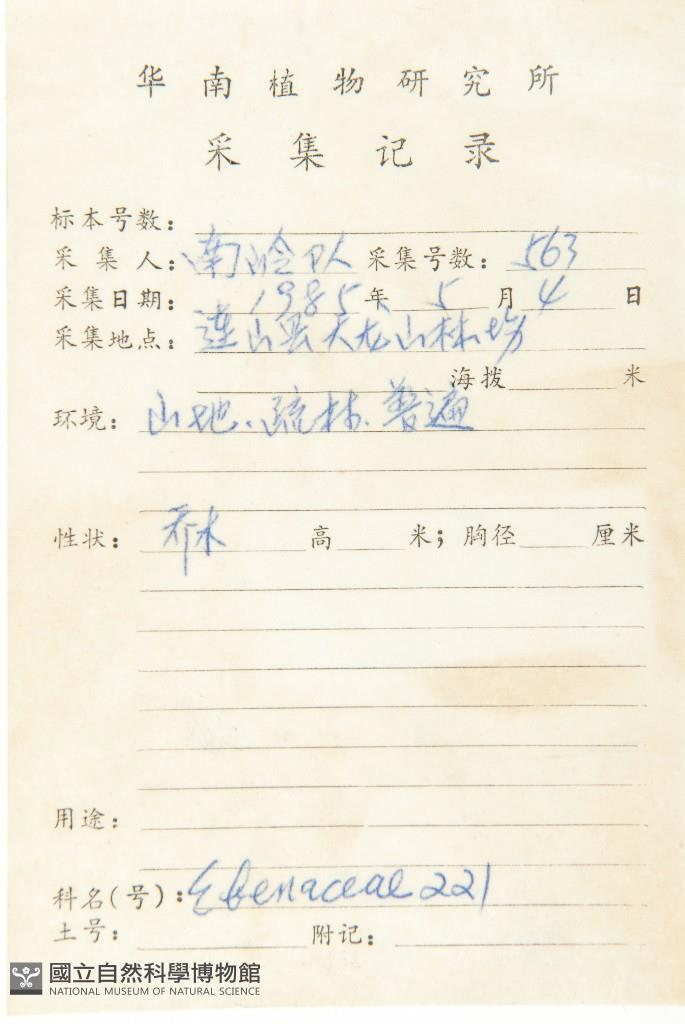 华南植物研究所
采集记录
标本号数：
采集人：南岭队 采集号数：563
采集日期：1985年5月4日
采集地点：连山县大龙山林场
海拨 米
环境：山地、疏林、普遍
性状：乔木 高 米；胸径 厘米
用途：
科名(号)：Ebenaceae 221
土号： 附记：
國立自然科學博物館
NATIONAL MUSEUM OF NATURAL SCIENCE